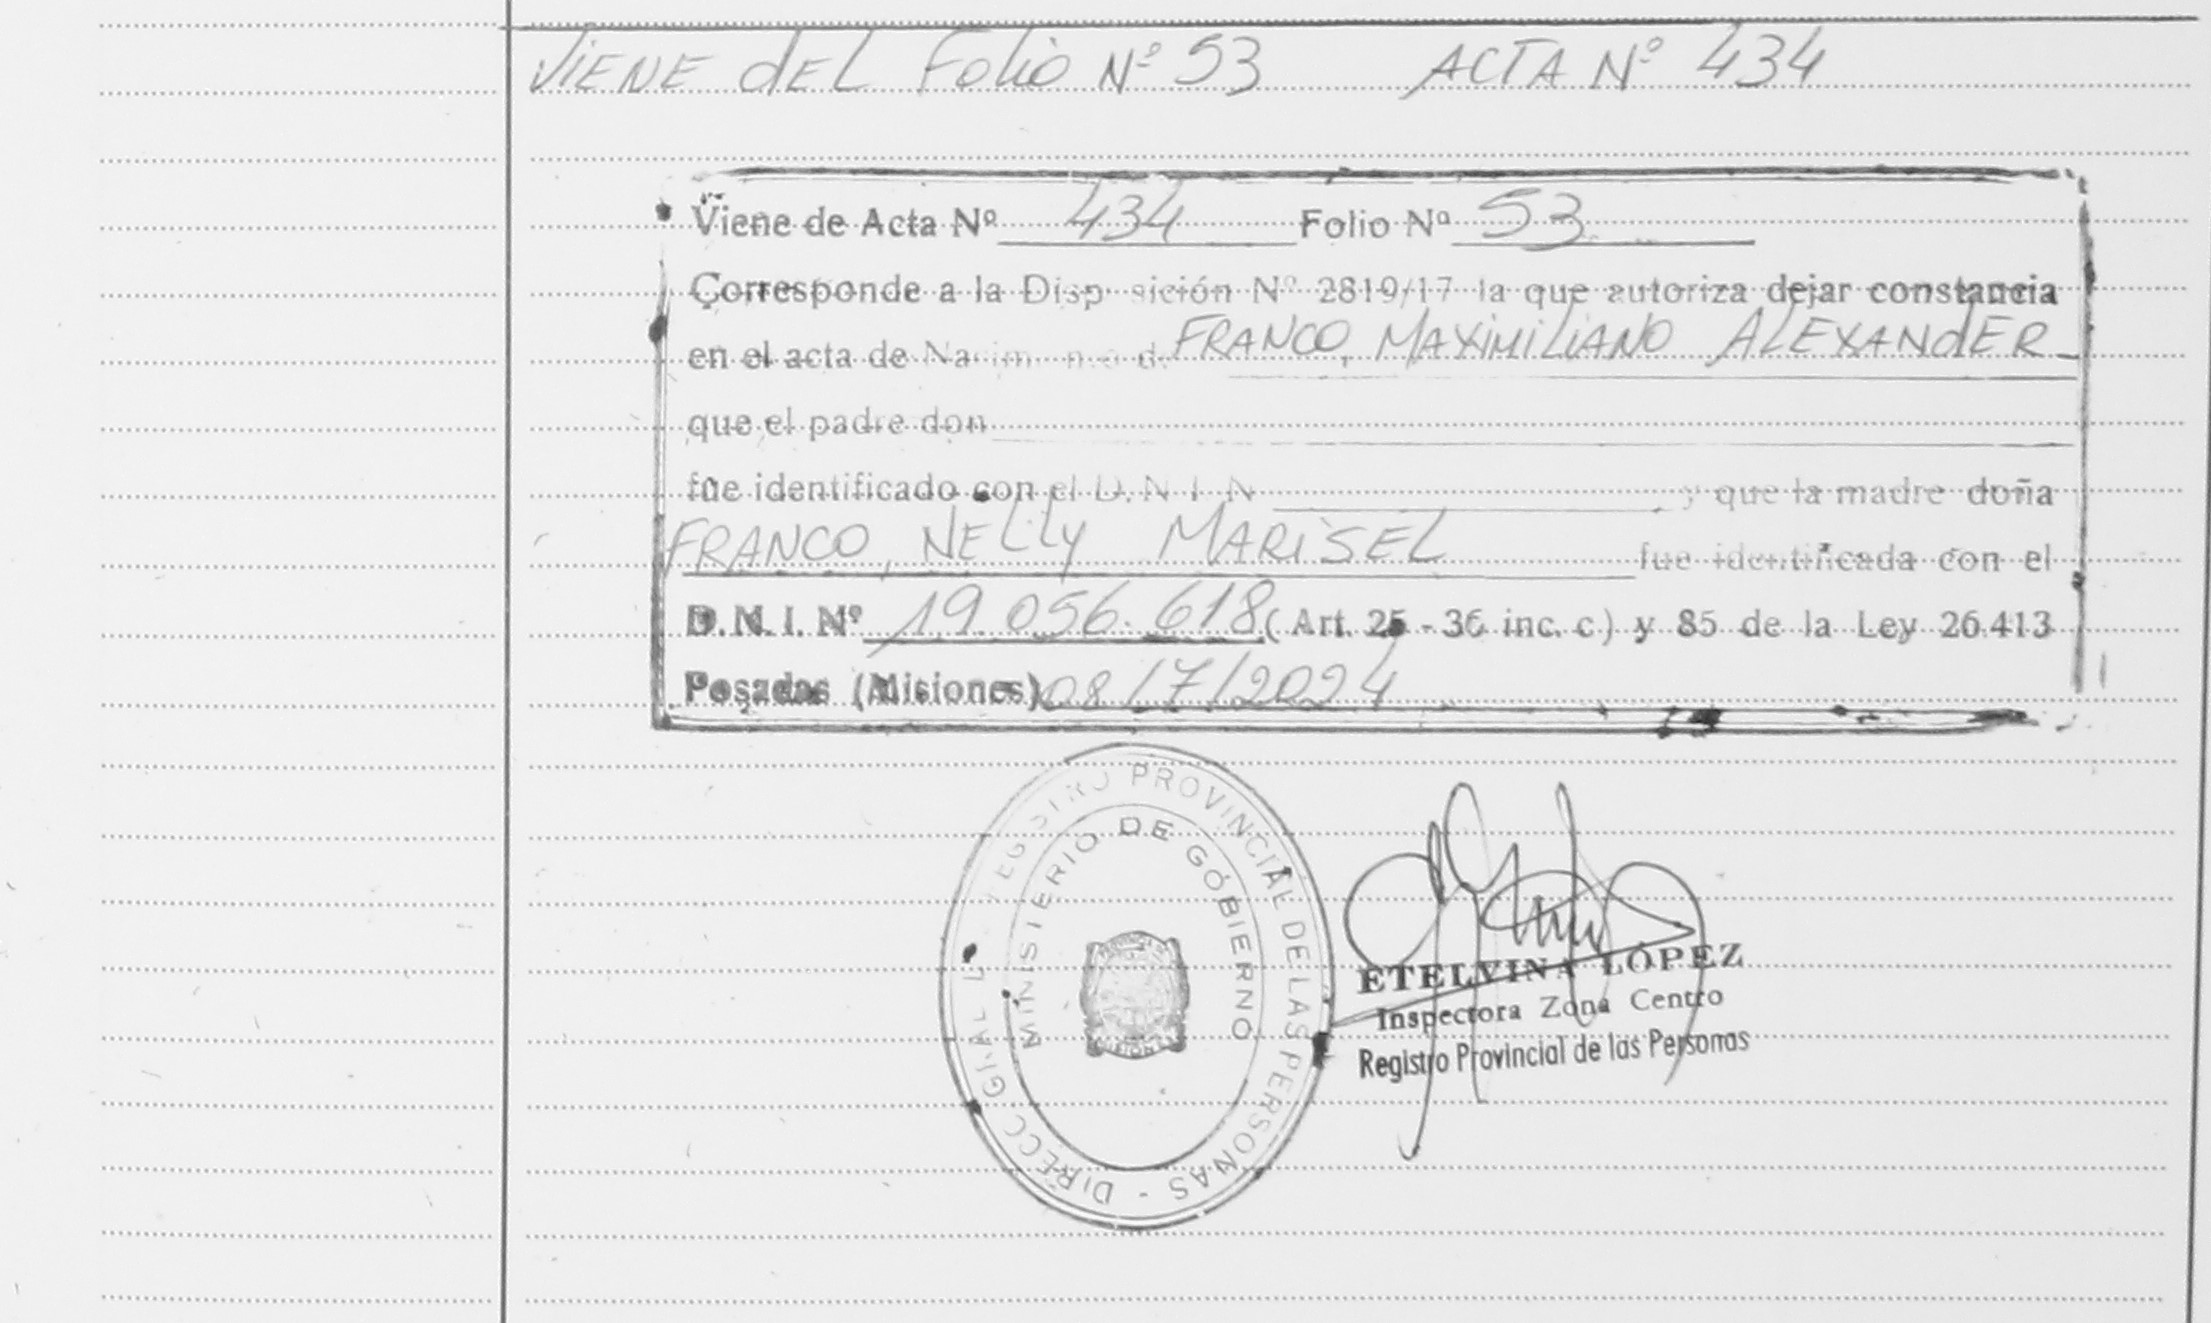 VIENE dEL Folio Nº 53 ACTA Nº 434
Viene de Acta Nº 434 Folio Nº 53
Corresponde a la Disp sición Nº 2819/17 la que autoriza dejar constancia
en el acta de Na im n o d FRANCO, MAXIMILIANO ALEXANDER
que el padre don
fue identificado con el D. N. I. N y que la madre doña
FRANCO, NELLY MARISEL fue identificada con el
D. N. I. Nº 19.056.618 ( Art. 25 - 36 inc. c) y 85 de la Ley 26.413
Posadas (Misiones) 08/7/2024
DIRECC GRAL REGISTRO PROVINCIAL DE LAS PERSONAS -
MINISTERIO DE GOBIERNO
ETELVINA LÓPEZ
Inspectora Zona Centro
Registro Provincial de las Personas